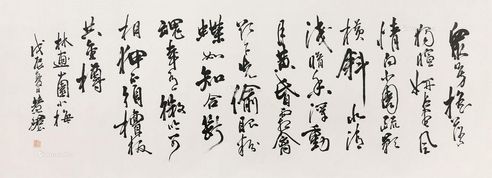 眾芳搖落
獨暄妍占盡風
情向小園疏影
橫斜水清
淺暗香浮動
月黃昏霜禽
欲下先偷眼粉
蝶如知合斷
魂幸有微吟可
相狎不須檀板
共金樽
林逋山園小梅
戊辰夏日